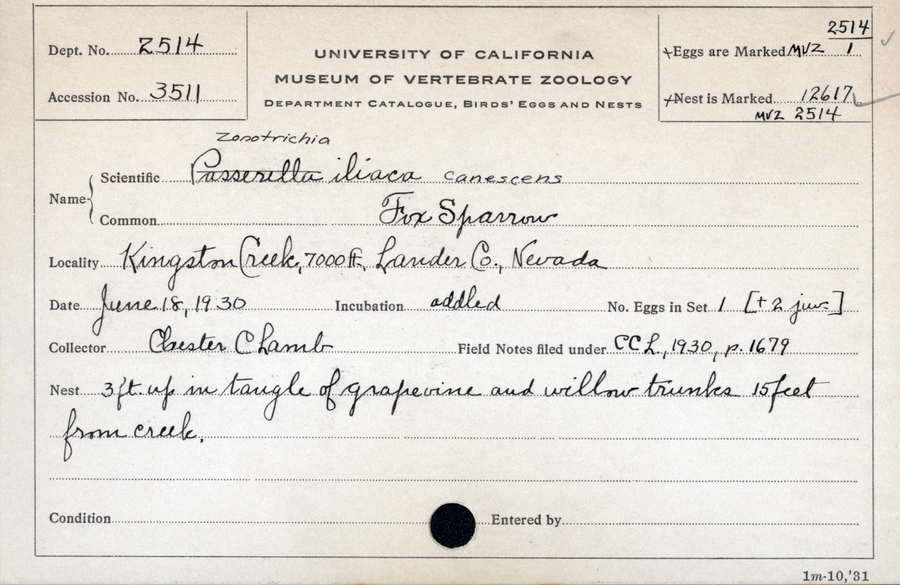 Dept. No. 2514
Accession No. 3511
UNIVERSITY OF CALIFORNIA
MUSEUM OF VERTEBRATE ZOOLOGY
DEPARTMENT CATALOGUE, BIRDS' EGGS AND NESTS
2514
+Eggs are Marked MVZ 1
+Nest is Marked 12617
MVZ 2514
Zonotrichia
Name
Scientific Passerella iliaca canescens
Common Fox Sparrow
Locality Kingston Creek, 7000 ft., Lander Co., Nevada
Date June 18, 1930 Incubation addled No. Eggs in Set 1 [+ 2 juv.]
Collector Chester C Lamb Field Notes filed under CCL, 1930, p. 1679
Nest 3 ft. up in tangle of grapevine and willow trunks 15 feet
from creek.
Condition Entered by
1m-10,'31